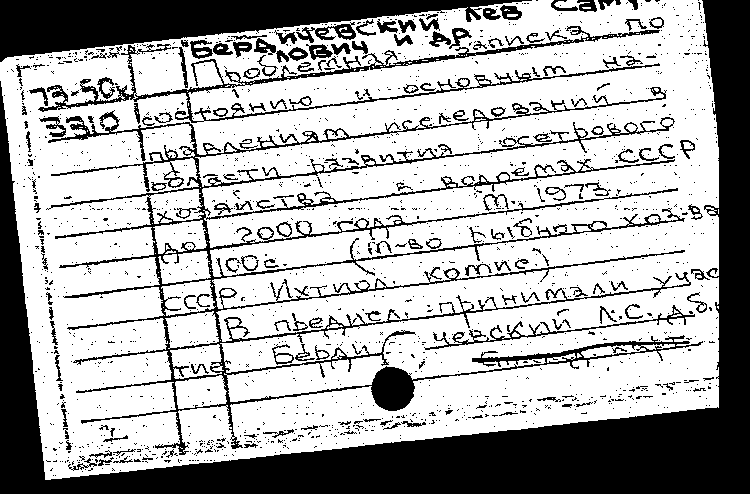 Бердичевский Лев Саму
лович и др
Проблемная записка по
73-50к
состоянию и основным на-
3310
правлениям исследований в
области развития осетрового
хозяйства в водоемах СССР
до 2000 года. М., 1973.
100с. (М-во рыбного хоз-ва
СССР. Ихтиол. комис)
В предисл.: принимали учас
тие: Берди чевский Л.С., д.б.